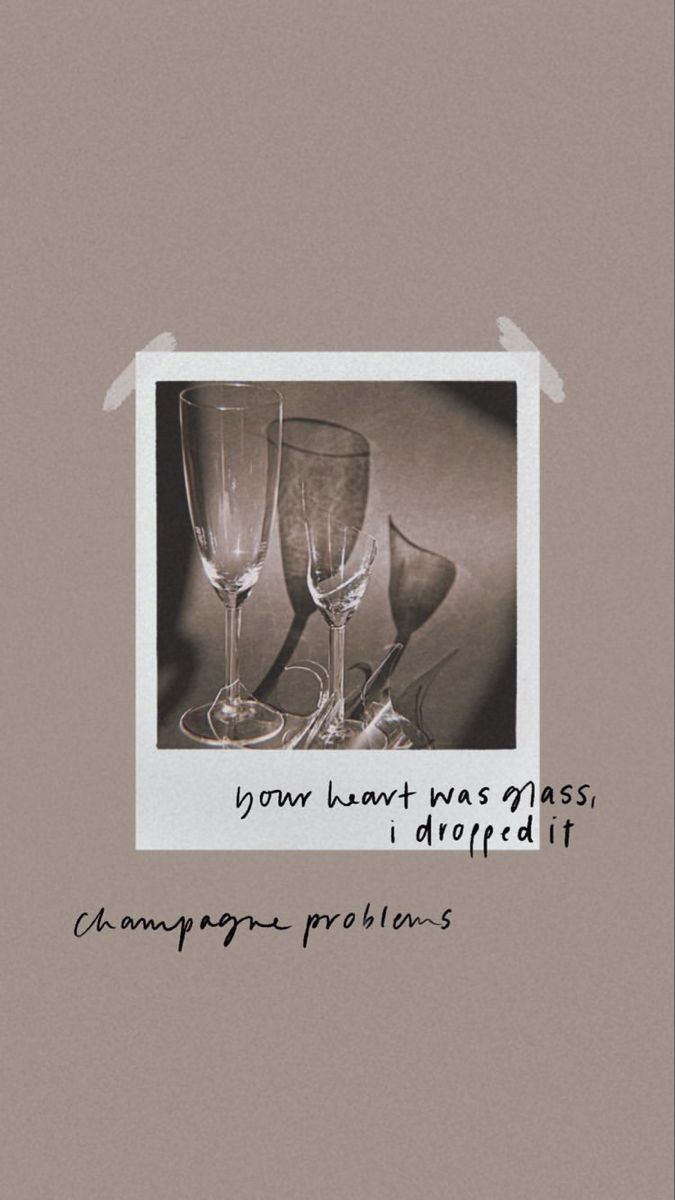 your heart was glass,
i dropped it
champagne problems